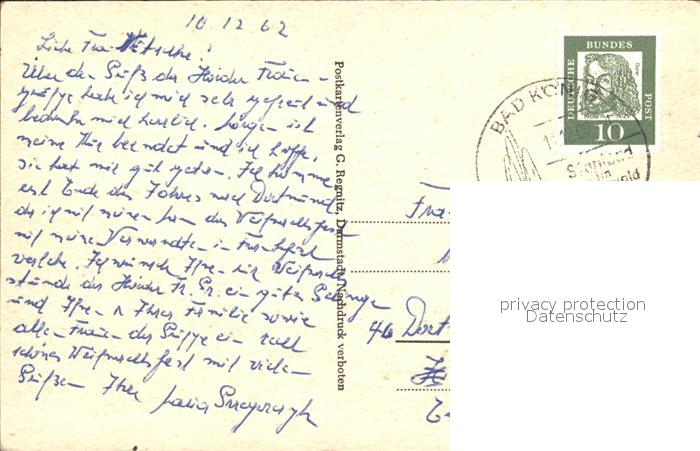 10.12.62
Liebe Frau
Über den Gruß der Kinder Frauen-
gruppe habe ich mich sehr gefreut und
bedanke mich herzlich. Morgen ist
meine Kur beendet und ich hoffe,
sie hat mir gut getan. Ich komme
erst Ende des Jahres nach Dortmund,
da ich mit meinem das Weihnachtsfest
mit meinen Verwandten in Frankfurt
verlebe. Ich wünsche Ihnen
stunde der Kinder Fr. Gr. ein gutes Gelingen
und Ihnen u Ihrer Familie sowie
allen Frauen der Gruppe ein
schönes Weihnachtsfest mit vielen
Grüßen Ihre
Postkartenverlag G. Regnitz, Darmstadt, Nachdruck verboten
DEUTSCHE BUNDES POST
10
BAD KÖNIG
Frau
46 Dort
privacy protection
Datenschutz